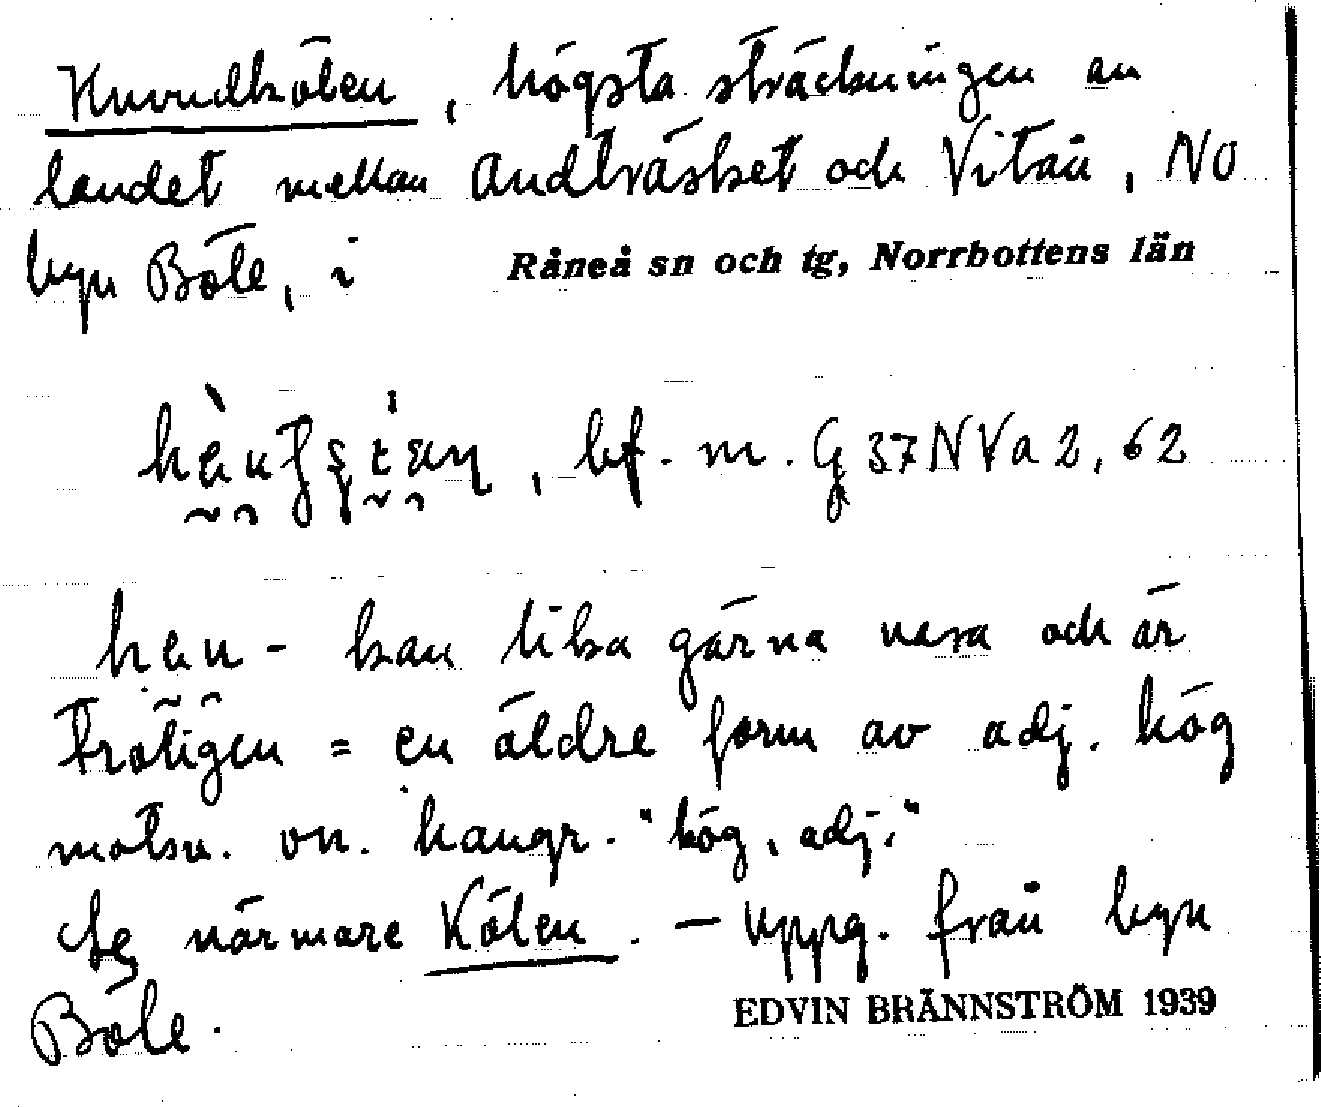 Huvudkölen, högsta sträckningen av
landet mellan Andträsket och Vitån, NO
byn Böle, i Råneå sn och tg, Norrbottens län
, bf. m. G 37 NV a 2, 62
hau- kan lika gärna vara och är
troligen = en äldre form av adj. hög
motsv. vn. haugr. "hög, adj."
Se närmare Kölen. – Uppg. från byn
Böle.
EDVIN BRÄNNSTRÖM 1939